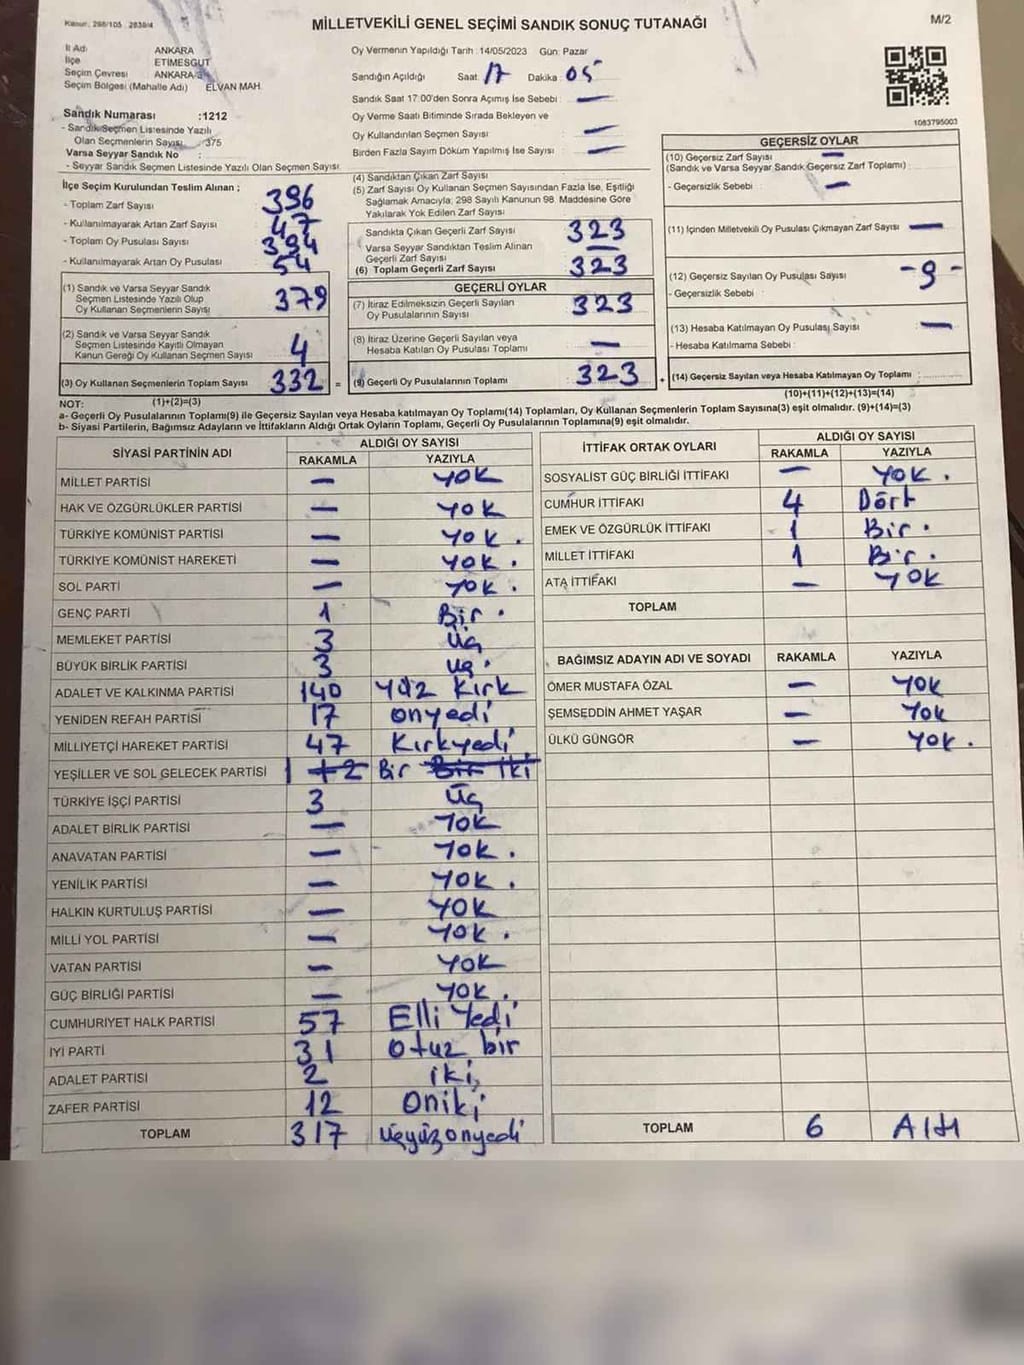 Kanun: 298/105 2839/4
MİLLETVEKİLİ GENEL SEÇİMİ SANDIK SONUÇ TUTANAĞI
M/2
İl Adı ANKARA
İlçe ETİMESGUT
Seçim Çevresi ANKARA
Seçim Bölgesi (Mahalle Adı) ELVAN MAH.
Sandık Numarası :1212
- Sandık Seçmen Listesinde Yazılı
Olan Seçmenlerin Sayısı : 375
Varsa Seyyar Sandık No :
- Seyyar Sandık Seçmen Listesinde Yazılı Olan Seçmen Sayısı:
Oy Vermenin Yapıldığı Tarih :14/05/2023 Gün: Pazar
Sandığın Açıldığı Saat 17 Dakika : 05
Sandık Saat 17:00'den Sonra Açımış İse Sebebi : —
Oy Verme Saati Bitiminde Sırada Bekleyen ve
Oy Kullandırılan Seçmen Sayısı : —
Birden Fazla Sayım Döküm Yapılmış İse Sayısı : —
1083795003
İlçe Seçim Kurulundan Teslim Alınan ;
- Toplam Zarf Sayısı : 396
- Kullanılmayarak Artan Zarf Sayısı : 47
- Toplam Oy Pusulası Sayısı : 394
- Kullanılmayarak Artan Oy Pusulası : 54
(1) Sandık ve Varsa Seyyar Sandık
Seçmen Listesinde Yazılı Olup
Oy Kullanan Seçmenlerin Sayısı 379
(2) Sandık ve Varsa Seyyar Sandık
Seçmen Listesinde Kayıtlı Olmayan
Kanun Gereği Oy Kullanan Seçmen Sayısı 4
(3) Oy Kullanan Seçmenlerin Toplam Sayısı 332 =
(4) Sandıktan Çıkan Zarf Sayısı
(5) Zarf Sayısı Oy Kullanan Seçmen Sayısından Fazla İse, Eşitliği
Sağlamak Amacıyla, 298 Sayılı Kanunun 98. Maddesine Göre
Yakılarak Yok Edilen Zarf Sayısı :
Sandıkta Çıkan Geçerli Zarf Sayısı 323
Varsa Seyyar Sandıktan Teslim Alınan
Geçerli Zarf Sayısı —
(6) Toplam Geçerli Zarf Sayısı 323
GEÇERLİ OYLAR
(7) İtiraz Edilmeksizin Geçerli Sayılan
Oy Pusulalarının Sayısı 323
(8) İtiraz Üzerine Geçerli Sayılan veya
Hesaba Katılan Oy Pusulası Toplamı —
(9) Geçerli Oy Pusulalarının Toplamı : 323 +
GEÇERSİZ OYLAR
(10) Geçersiz Zarf Sayısı —
(Sandık ve Varsa Seyyar Sandık Geçersiz Zarf Toplamı)
- Geçersizlik Sebebi : —
(11) İçinden Milletvekili Oy Pusulası Çıkmayan Zarf Sayısı —
(12) Geçersiz Sayılan Oy Pusulası Sayısı -9-
- Geçersizlik Sebebi :
(13) Hesaba Katılmayan Oy Pusulası Sayısı —
- Hesaba Katılmama Sebebi :
(14) Geçersiz Sayılan veya Hesaba Katılmayan Oy Toplamı :
(10)+(11)+(12)+(13)=(14)
NOT: (1)+(2)=(3)
a- Geçerli Oy Pusulalarının Toplamı(9) ile Geçersiz Sayılan veya Hesaba katılmayan Oy Toplamı(14) Toplamları, Oy Kullanan Seçmenlerin Toplam Sayısına(3) eşit olmalıdır. (9)+(14)=(3)
b- Siyasi Partilerin, Bağımsız Adayların ve İttifakların Aldığı Ortak Oyların Toplamı, Geçerli Oy Pusulalarının Toplamına(9) eşit olmalıdır.
SİYASİ PARTİNİN ADI ALDIĞI OY SAYISI
RAKAMLA YAZIYLA
MİLLET PARTİSİ — YOK
HAK VE ÖZGÜRLÜKLER PARTİSİ — YOK
TÜRKİYE KOMÜNİST PARTİSİ — YOK.
TÜRKİYE KOMÜNİST HAREKETİ — YOK.
SOL PARTİ — YOK.
GENÇ PARTİ 1 Bir.
MEMLEKET PARTİSİ 3 Üç
BÜYÜK BİRLİK PARTİSİ 3 Üç.
ADALET VE KALKINMA PARTİSİ 140 Yüz Kırk
YENİDEN REFAH PARTİSİ 17 onyedi
MİLLİYETÇİ HAREKET PARTİSİ 47 Kırkyedi
YEŞİLLER VE SOL GELECEK PARTİSİ 1 +2 Bir Bir iki
TÜRKİYE İŞÇİ PARTİSİ 3 Üç
ADALET BİRLİK PARTİSİ — YOK
ANAVATAN PARTİSİ — YOK.
YENİLİK PARTİSİ — YOK.
HALKIN KURTULUŞ PARTİSİ — YOK
MİLLİ YOL PARTİSİ — YOK.
VATAN PARTİSİ — YOK
GÜÇ BİRLİĞİ PARTİSİ — YOK.
CUMHURİYET HALK PARTİSİ 57 Elli Yedi
İYİ PARTİ 31 Otuz bir
ADALET PARTİSİ 2 iki
ZAFER PARTİSİ 12 Oniki
TOPLAM 317 Üçyüzonyedi
İTTİFAK ORTAK OYLARI ALDIĞI OY SAYISI
RAKAMLA YAZIYLA
SOSYALİST GÜÇ BİRLİĞİ İTTİFAKI — YOK.
CUMHUR İTTİFAKI 4 Dört
EMEK VE ÖZGÜRLÜK İTTİFAKI 1 Bir.
MİLLET İTTİFAKI 1 Bir.
ATA İTTİFAKI — YOK
TOPLAM
BAĞIMSIZ ADAYIN ADI VE SOYADI RAKAMLA YAZIYLA
ÖMER MUSTAFA ÖZAL — YOK
ŞEMSEDDİN AHMET YAŞAR — YOK
ÜLKÜ GÜNGÖR — YOK.
TOPLAM 6 Altı